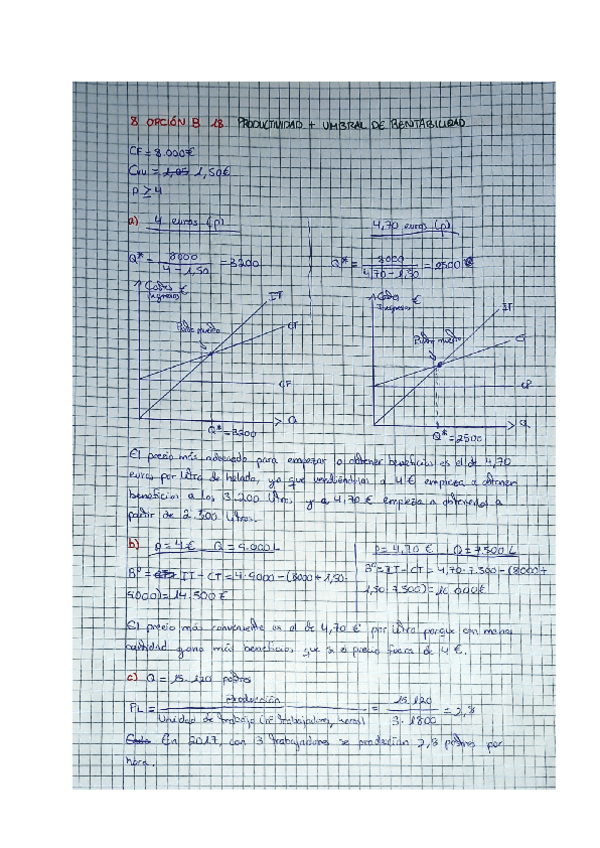 8 OPCIÓN B 18 PRODUCTIVIDAD + UMBRAL DE RENTABILIDAD
CF = 8.000€
CVU = 1,05 1,50€
P ≥ 4
a) 4 euros (p)
Q* = 8000 / 4 - 1,50 = 3200
↑ Costes Ingresos €
IT
CT
Punto muerto
CF
Q
Q* = 3200
4,70 euros (p)
Q* = 8000 / 4,70 - 1,50 = 2500
↑ Costes Ingresos €
IT
CT
Punto muerto
CF
Q
Q* = 2500
El precio más adecuado para empezar a obtener beneficios es el de 4,70
euros por litro de helado, ya que vendiéndolos a 4€ empieza a obtener
beneficios a los 3.200 litros y a 4,70 € empieza a obtenerlos a
partir de 2.500 litros.
b) p = 4€ Q = 9.000 L
Bº = IT - CT = 4·9000 - (8000 + 1,50·
9000) = 14.500€
p = 4,70 € Q = 7.500 L
Bº = IT - CT = 4,70·7.500 - (8000 +
1,50·7.500) = 16.000€
El precio más conveniente es el de 4,70 € por litro porque con menos
cantidad gana más beneficios, que si el precio fuera de 4 €.
c) Q = 15.120
PL = Producción / Unidad de trabajo (nº trabajadores, horas) = 15.120 / 3·1800 = 2,8
En 2017, con 3 trabajadores se producían 2,8 por
hora.